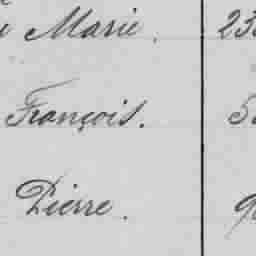 Marie. 23
François. 5
Pierre. 9